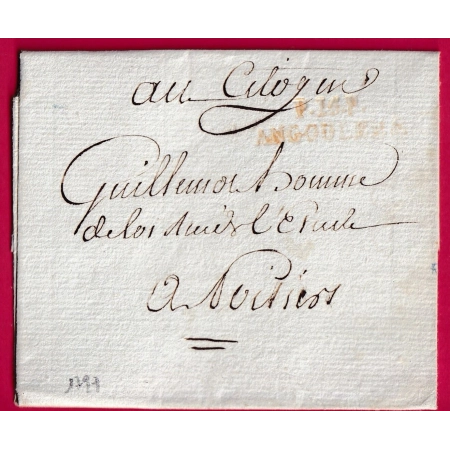 au Citoyen
P.15.P.
ANGOULEME
Guillemot homme
de loi rue de l'Etude
a Poitiers
1797